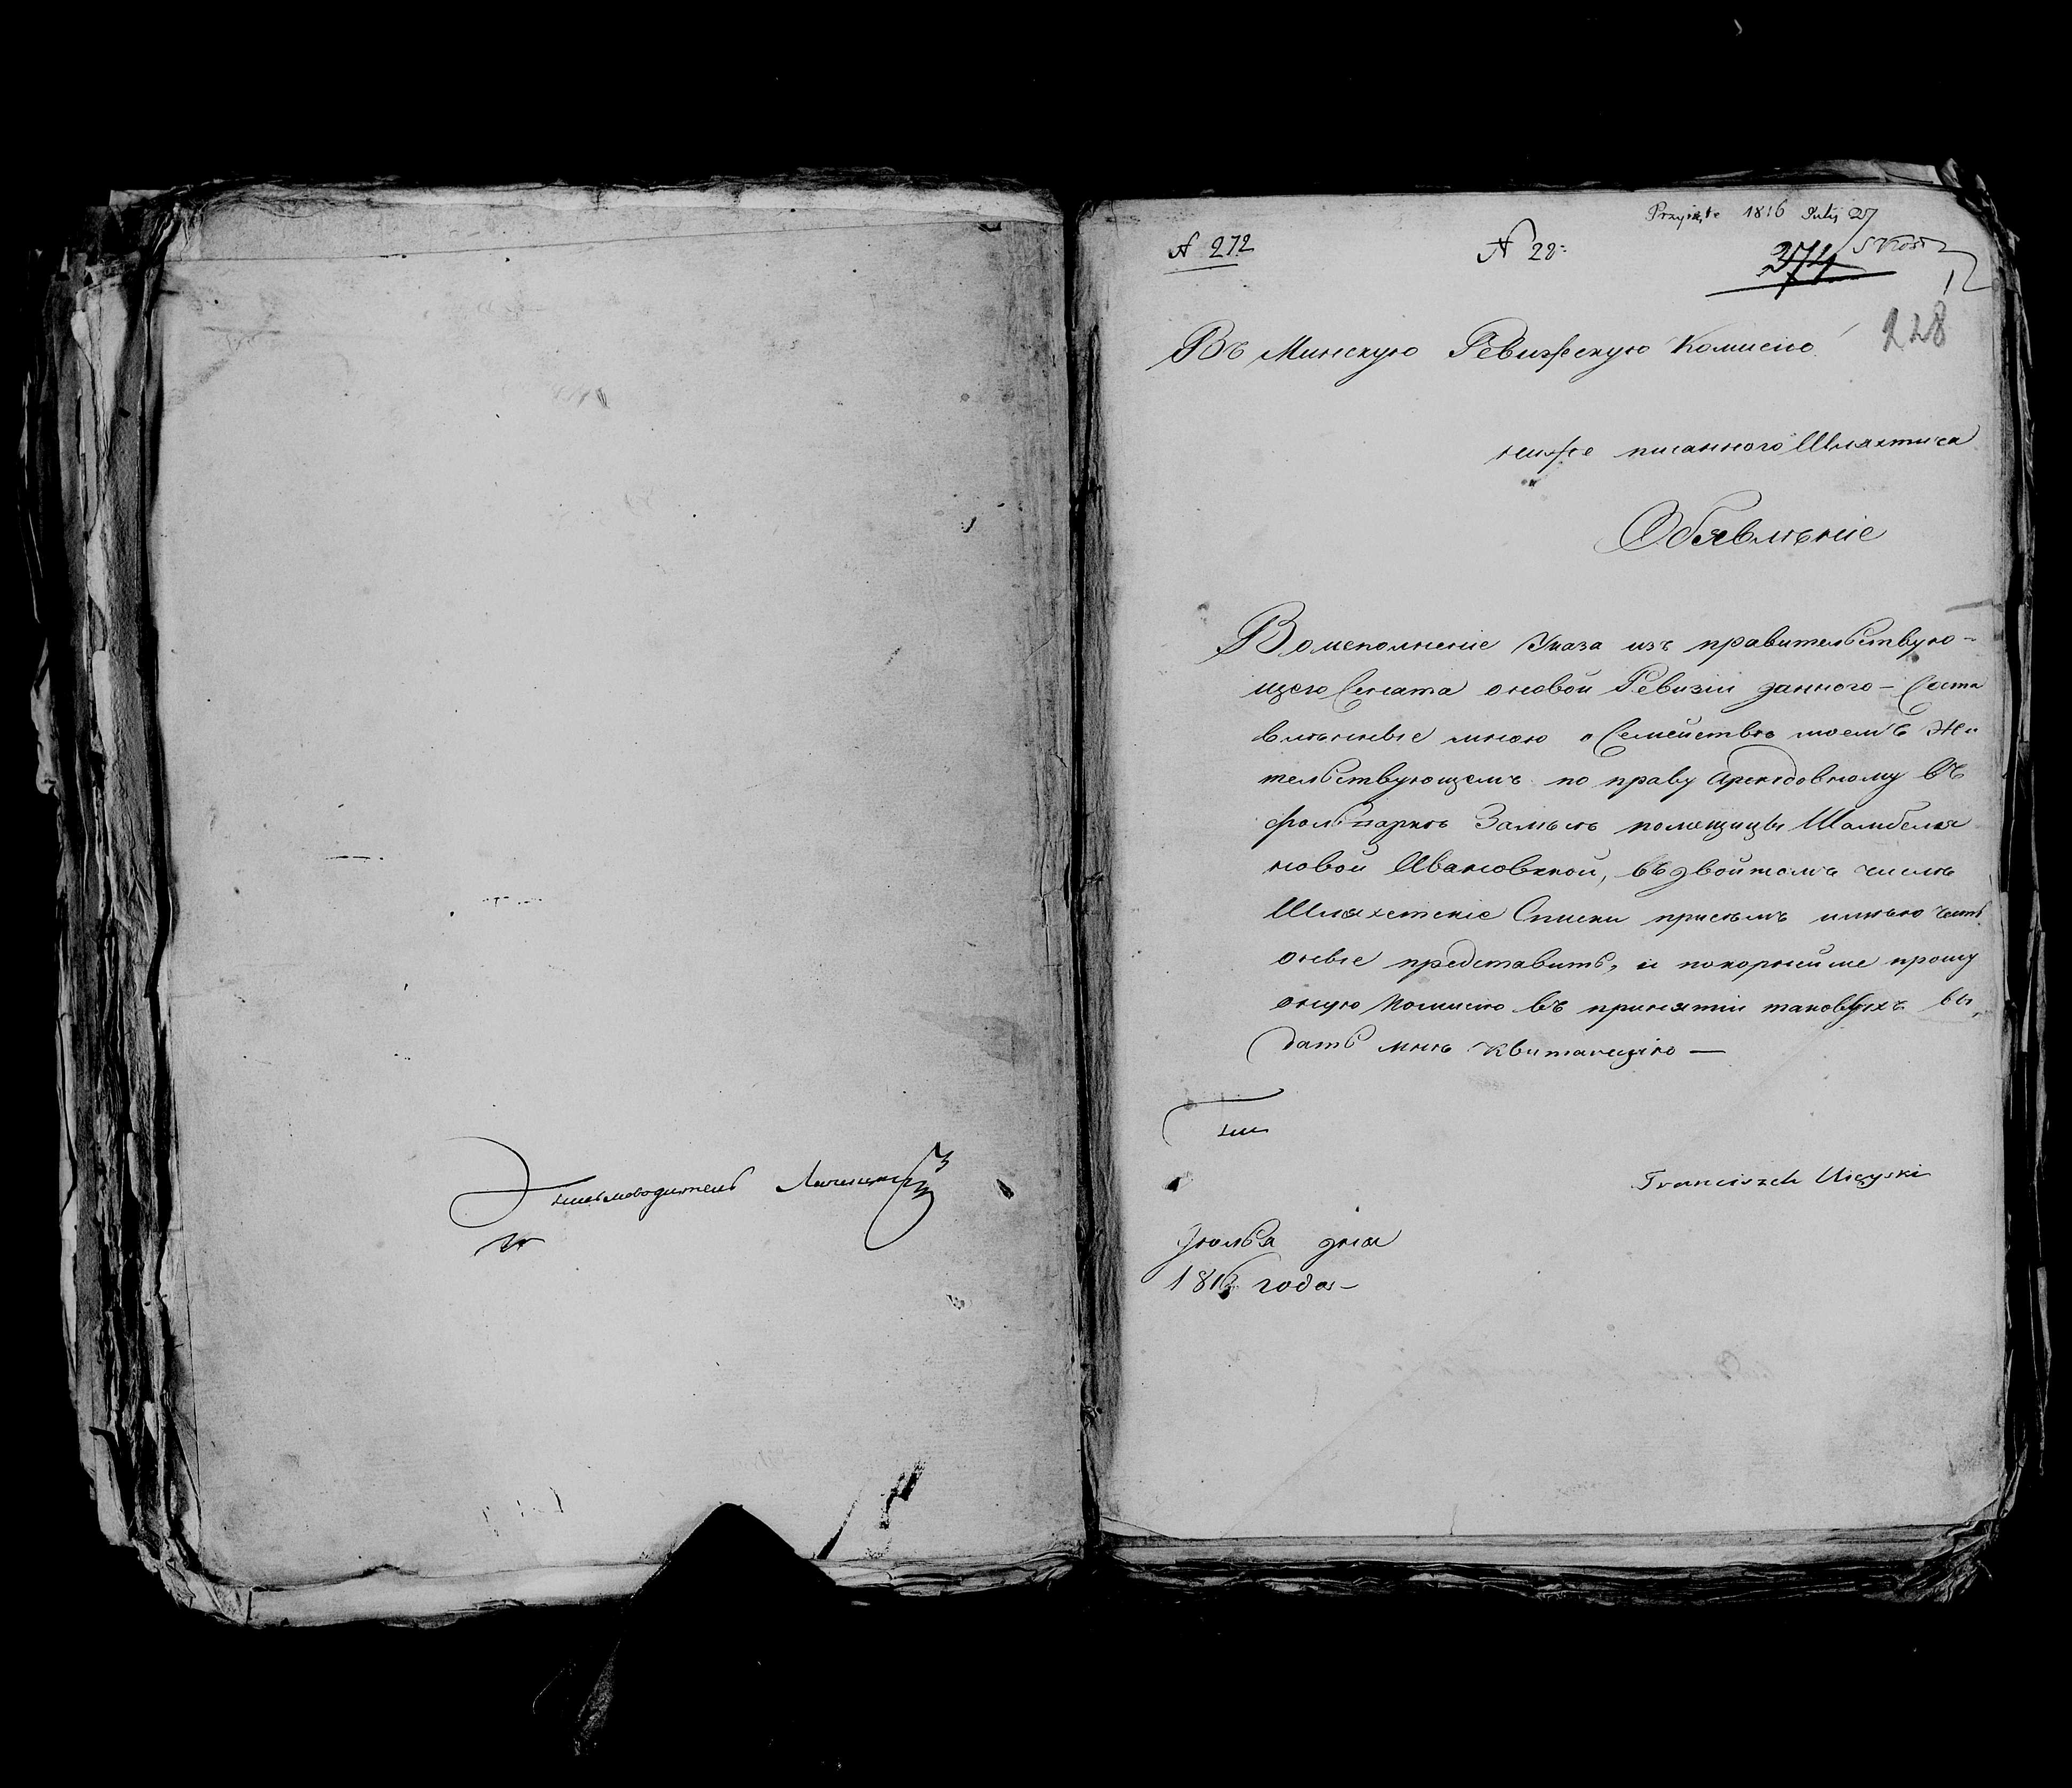 Письмоводитель
Przyięte 1816 Julij 27
№ 272
№ 28:
374
228
Въ Минскую Ревижскую Комисію
ниже писанного Шляхтича
Объявлѣніе
Во исполненіе Указа изъ правительствую-
щего Сената о новой Ревизіи данного – Соста
влѣнные мною о Семействѣ моемъ жи
тельствующемъ по праву Арендовному въ
фольваркѣ Замѣнѣ помещицы Шамбеля
новой Ивановской, въ двойтомъ числѣ
Шляхетскіе Списки присемъ имѣю честь
оные представить, и покорнейше прошу
оную Комисію въ принятіи таковыхъ вы,
дать мнѣ Квитанцію —
Franciszek
Іюлья дня
1816 года –